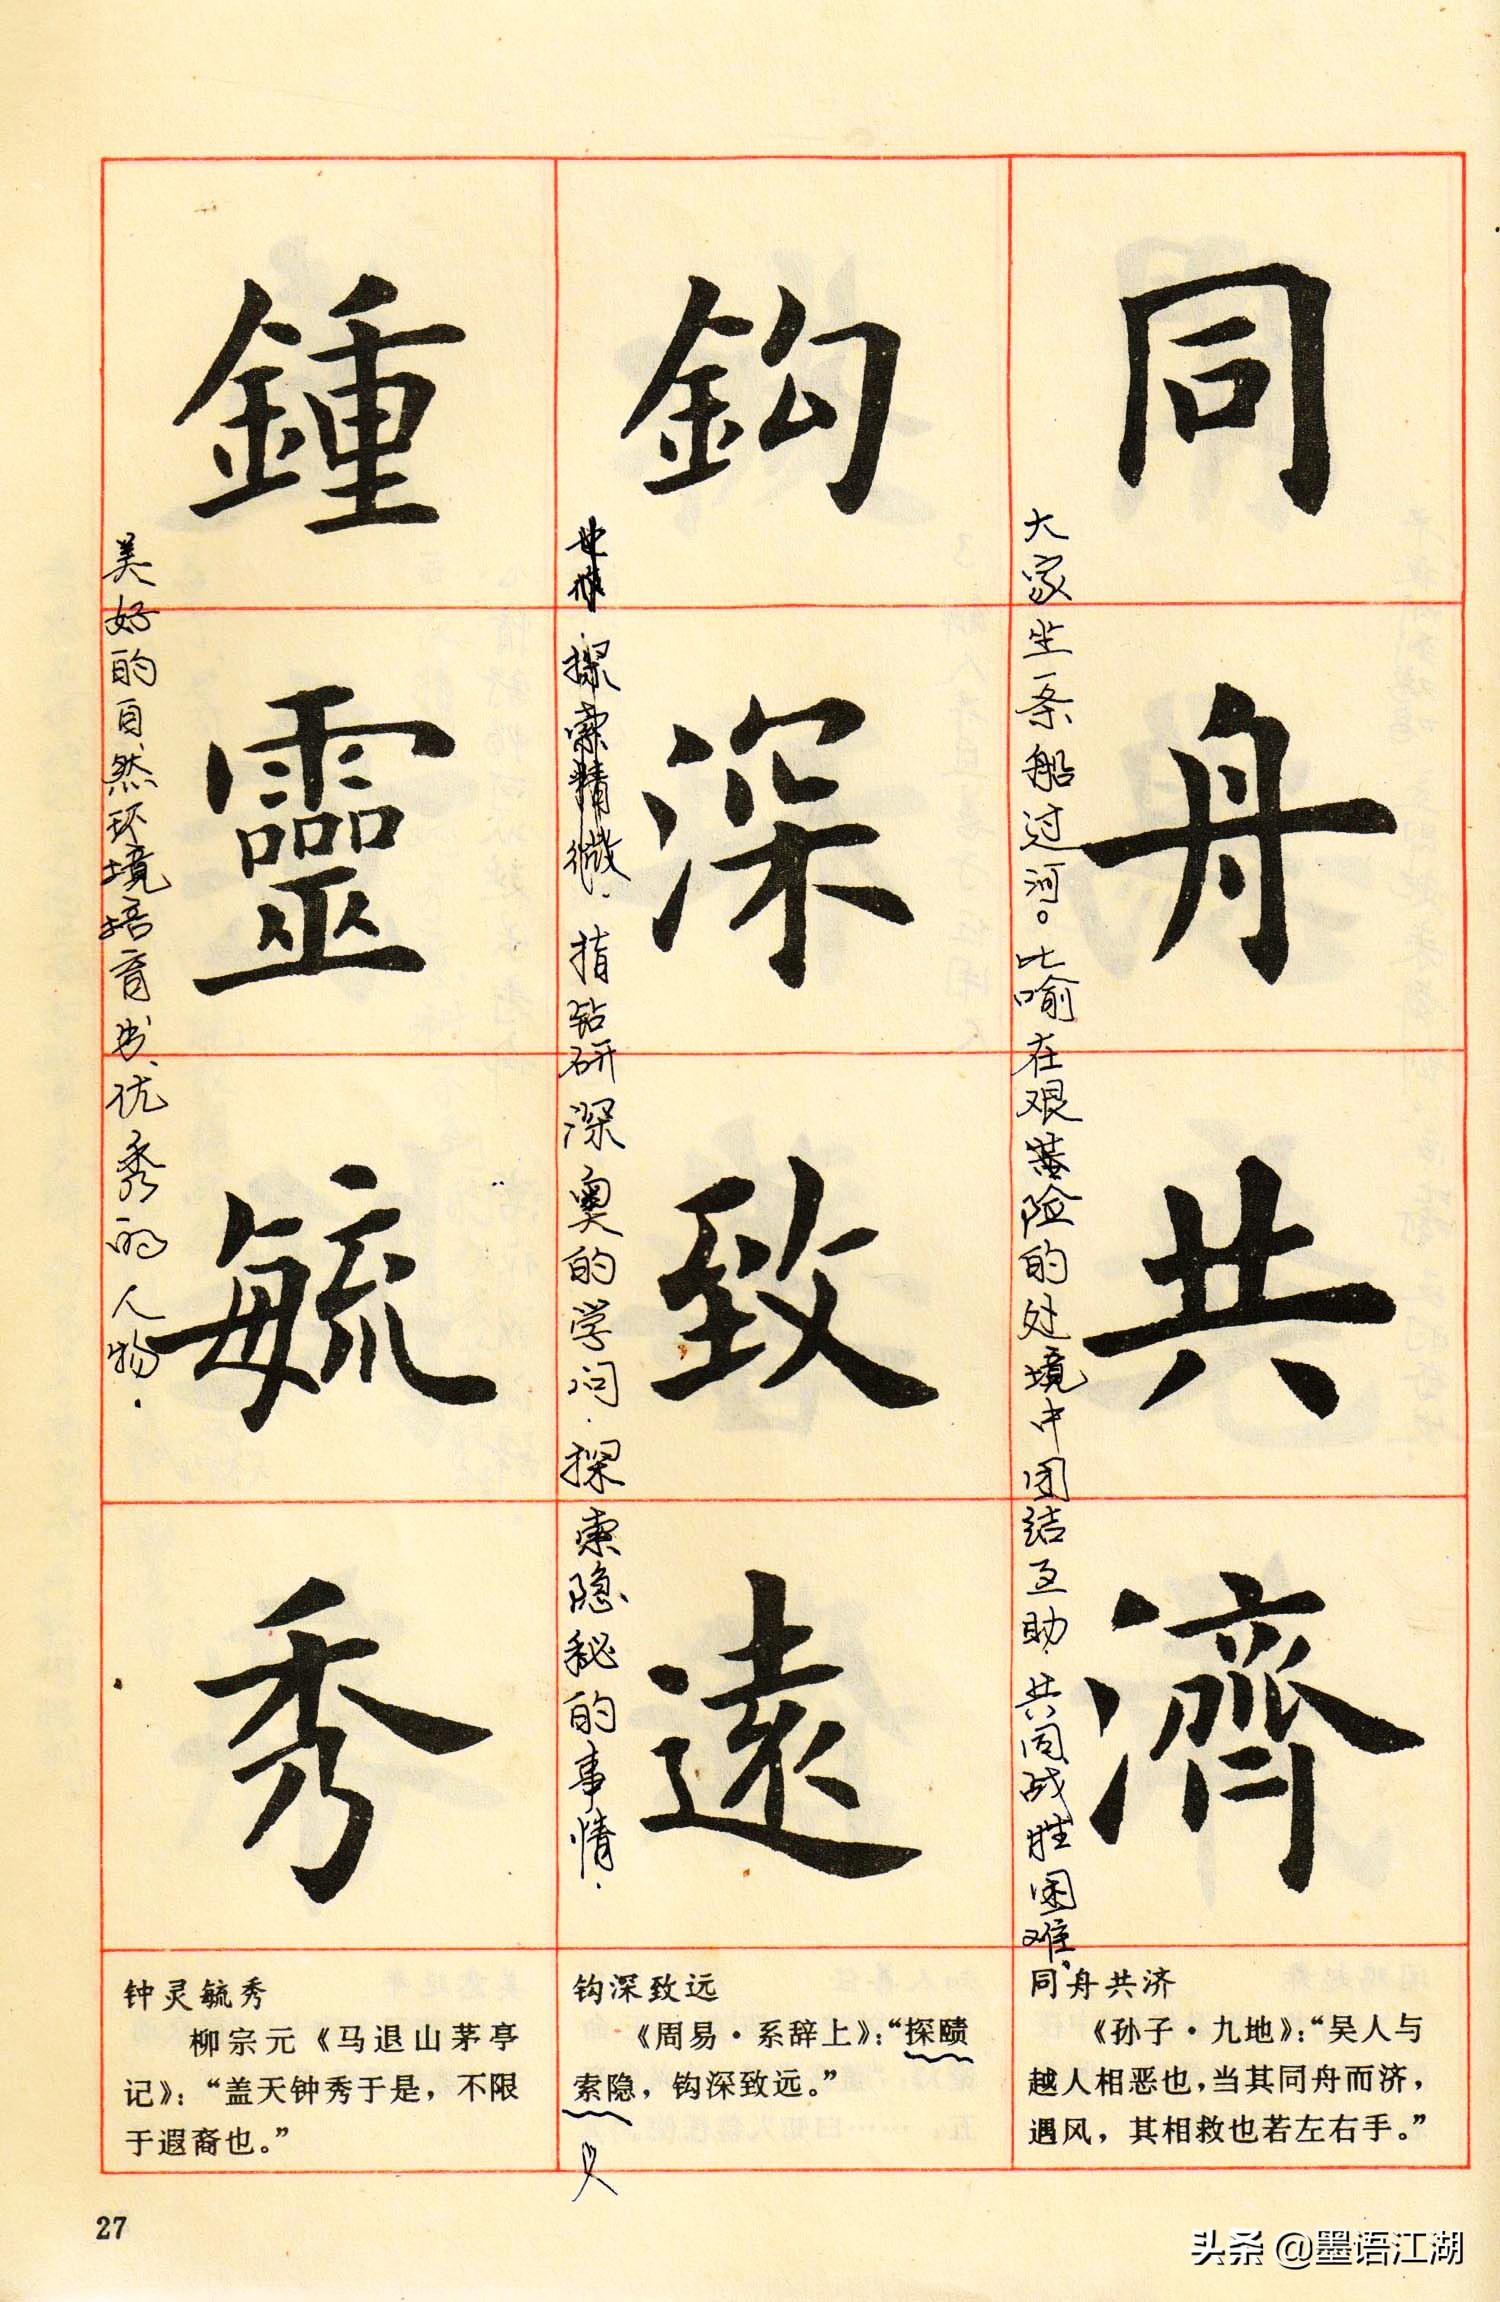 同舟共濟
大家坐一条船过河。比喻在艰险的处境中团结互助，共同战胜困难。
鈎深致遠
探索精微．指钻研深奥的学问．探索隐秘的事情．
鍾靈毓秀
美好的自然环境培育出优秀的人物．
同舟共济
《孙子·九地》：“吴人与
越人相恶也，当其同舟而济，
遇风，其相救也若左右手。”
钩深致远
《周易·系辞上》：“探赜
索隐，钩深致远。”
钟灵毓秀
柳宗元《马退山茅亭
记》：“盖天钟秀于是，不限
于遐裔也。”
27
头条 @墨语江湖